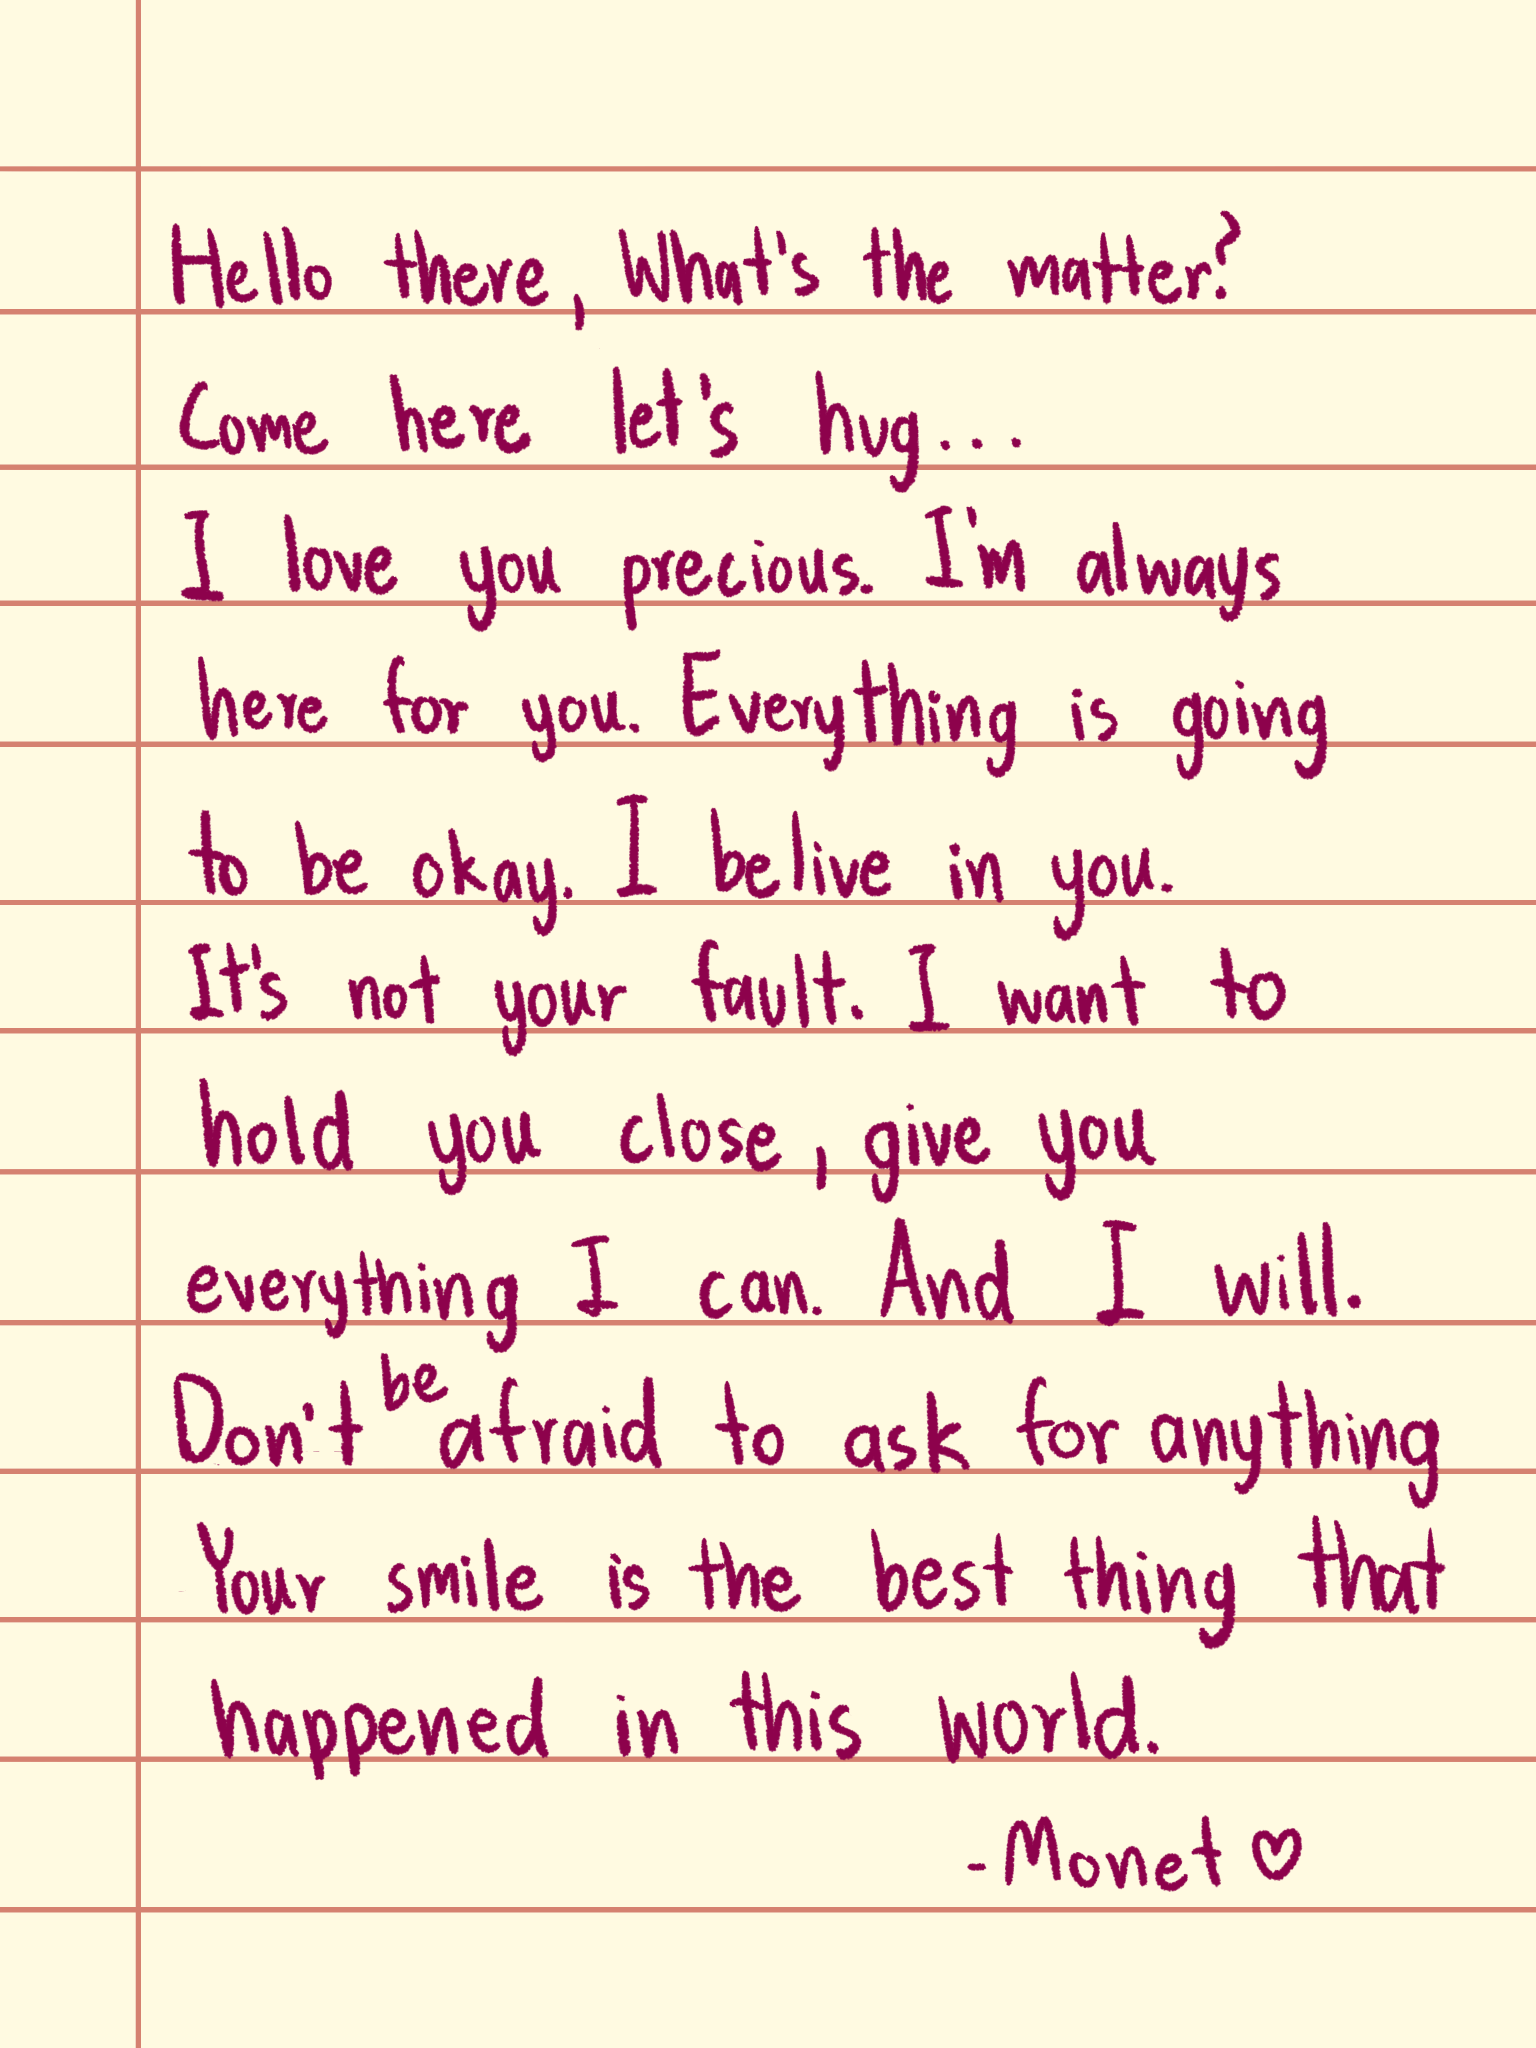 Hello there, What's the matter?
Come here let's hug...
I love you precious. I'm always
here for you. Everything is going
to be okay. I belive in you.
It's not your fault. I want to
hold you close, give you
everything I can. And I will.
Don't be afraid to ask for anything
Your smile is the best thing that
happened in this world.
-Monet ♡